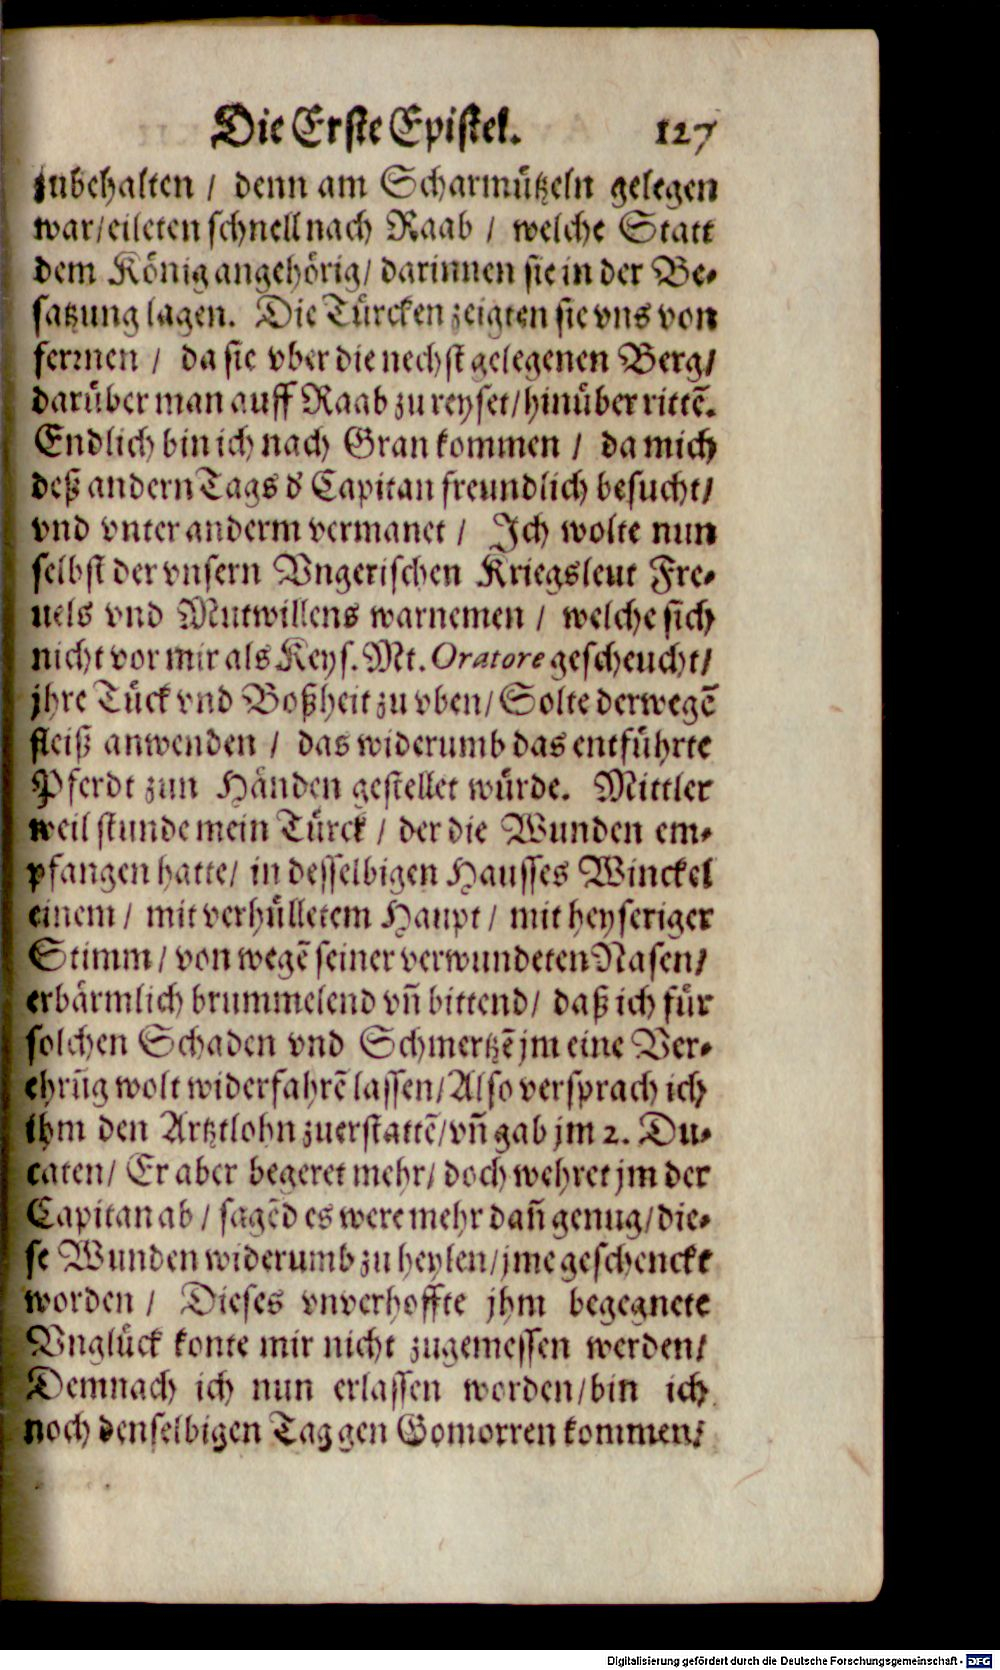 Die Erste Epistel. 127
zubehalten / denn am Scharmützeln gelegen
war/eileten schnell nach Raab / welche Statt
dem König angehörig/ darinnen sie in der Be-
satzung lagen. Die Türcken zeigten sie vns von
fermen / da sie vber die nechst gelegenen Berg/
darüber man auff Raab zu reyset/hinüber rittē.
Endlich bin ich nach Gran kommen / da mich
deß andern Tags d' Capitan freundlich besucht/
vnd vnter anderm vermanet / Ich wolte nun
selbst der vnsern Vngerischen Kriegsleut Fre-
uels vnd Mutwillens warnemen / welche sich
nicht vor mir als Keys. Mt. Oratore gescheucht/
jhre Tück vnd Boßheit zu vben/ Solte derwegē
fleiß anwenden / das widerumb das entführte
Pferdt zun Händen gestellet würde. Mittler
weil stunde mein Türck / der die Wunden em-
pfangen hatte/ in desselbigen Hausses Winckel
einem / mit verhülletem Haupt / mit heyseriger
Stimm / von wegē seiner verwundeten Nasen/
erbärmlich brummelend vñ bittend/ daß ich für
solchen Schaden vnd Schmertzē jm eine Ver-
ehrũg wolt widerfahrē lassen/Also versprach ich
ihm den Artztlohn zuerstattē/vñ gab jm 2. Du-
caten/ Er aber begeret mehr/ doch wehret jm der
Capitan ab / sagēd es were mehr dañ genug/die-
se Wunden widerumb zu heylen/jme geschenckt
worden / Dieses vnverhoffte jhm begegnete
Vnglück konte mir nicht zugemessen werden/
Demnach ich nun erlassen worden/bin ich
noch denselbigen Tag gen Gomorren kommen/
Digitalisierung gefördert durch die Deutsche Forschungsgemeinschaft - DFG